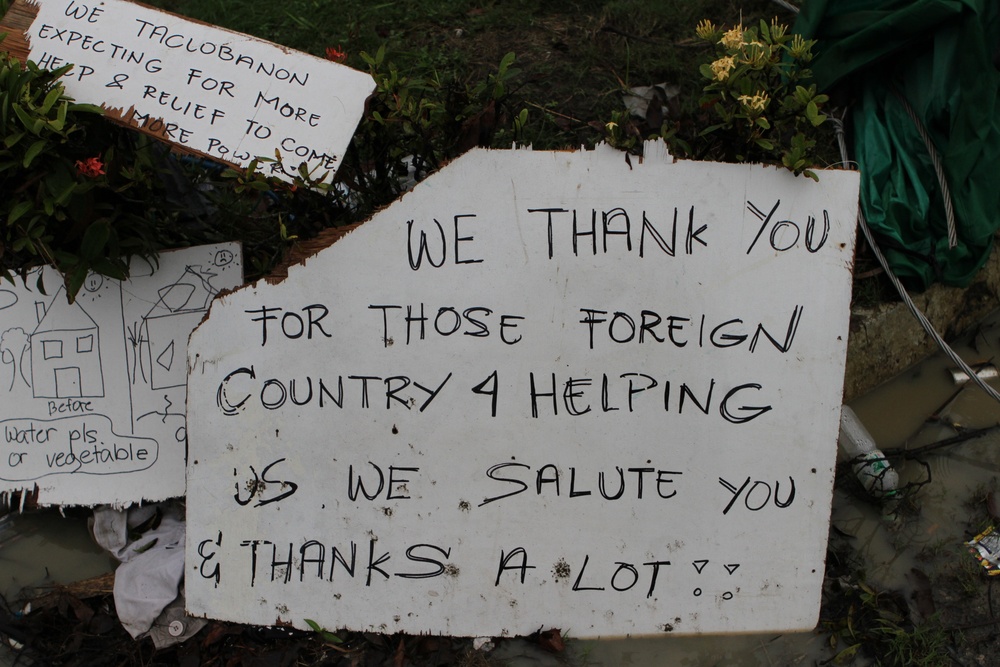 WE TACLOBANON
EXPECTING FOR MORE
HELP & RELIEF TO COME
MORE POWER
WE THANK YOU
FOR THOSE FOREIGN
COUNTRY 4 HELPING
US WE SALUTE YOU
& THANKS A LOT !!
Before
Water pls.
or vegetable